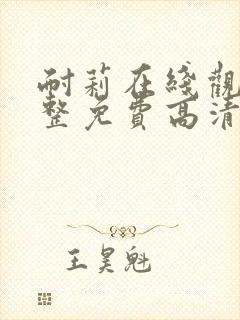 耐莉在綫觀
整免費高清
王昊魁